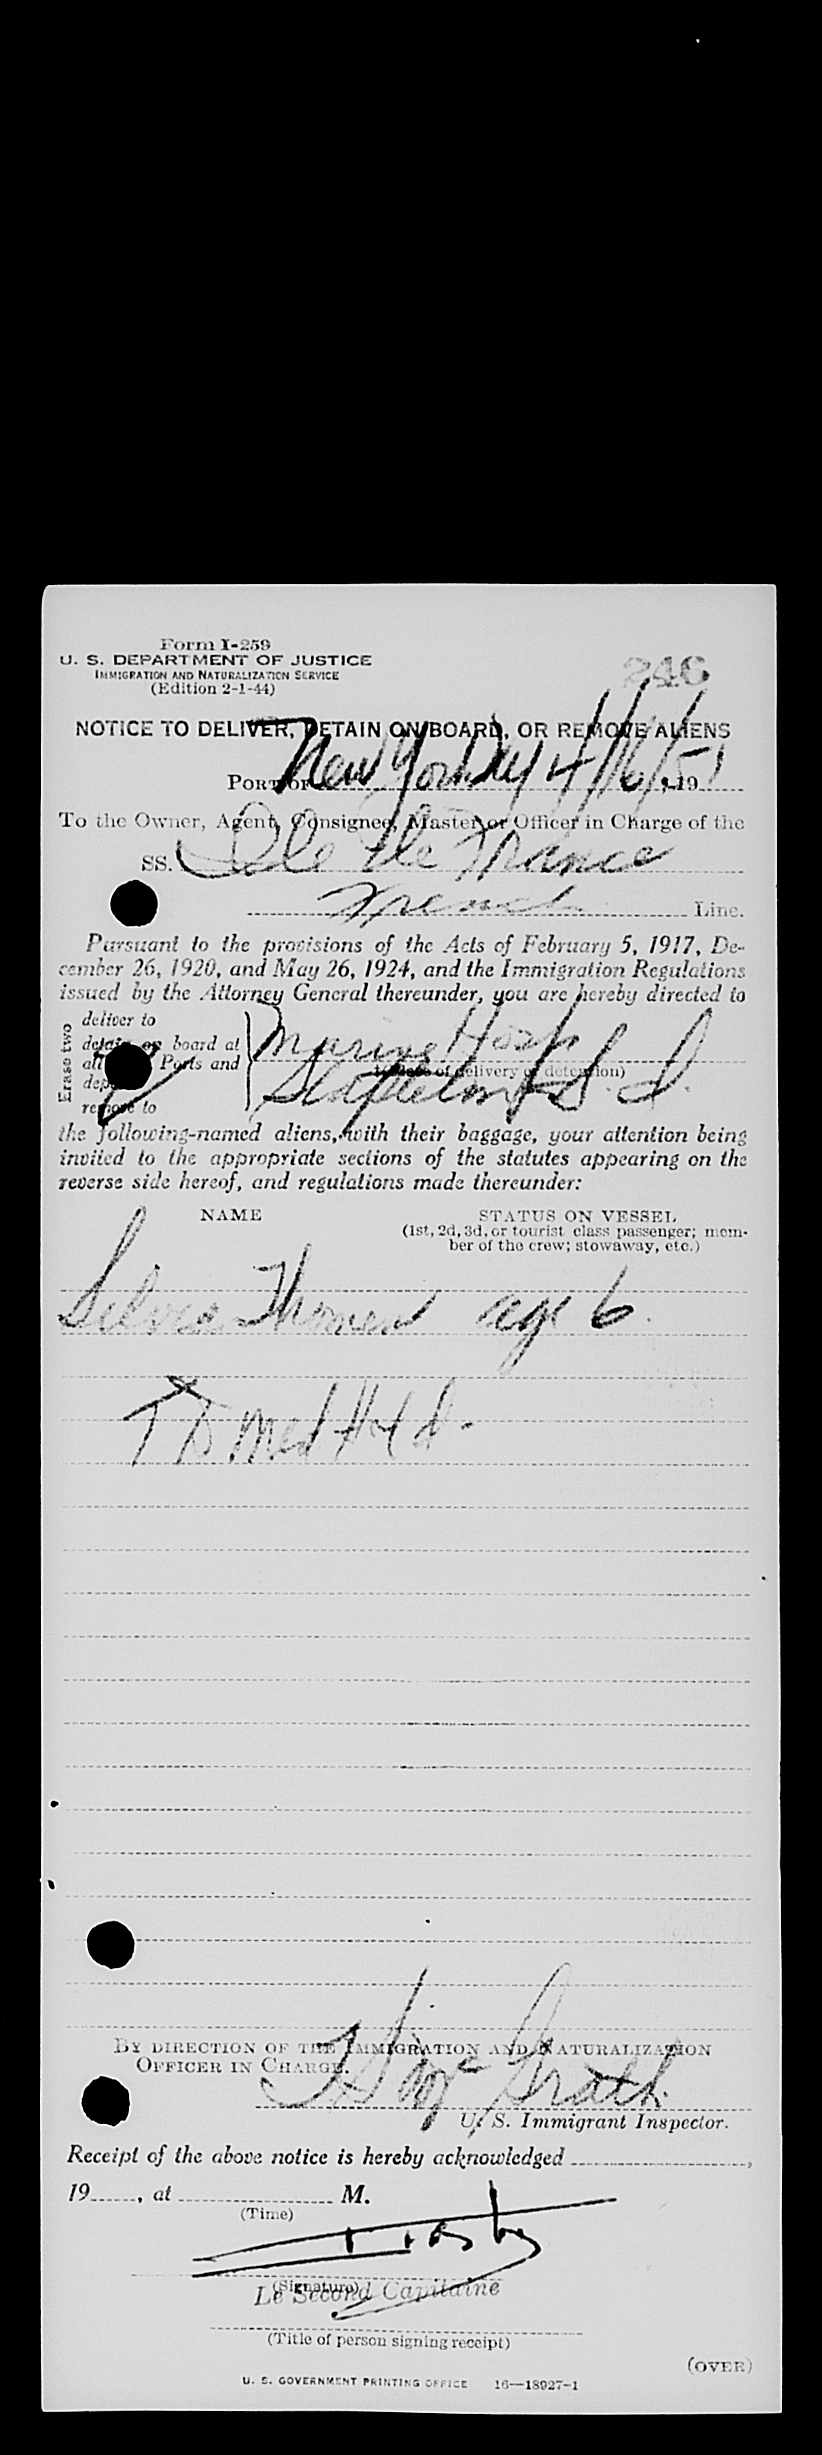 Form I-259
U. S. DEPARTMENT OF JUSTICE
IMMIGRATION AND NATURALIZATION SERVICE
(Edition 2-1-44)
246
NOTICE TO DELIVER, DETAIN ON BOARD, OR REMOVE ALIENS
PORT OF New York NY 4/16/51, 19
To the Owner, Agent, Consignee, Master or Officer in Charge of the
SS. Ile de France
French Line.
Pursuant to the provisions of the Acts of February 5, 1917, De-
cember 26, 1920, and May 26, 1924, and the Immigration Regulations
issued by the Attorney General thereunder, you are hereby directed to
Erase two
deliver to
detain on board at
all Ports and
remove to
Marine Hosp
(Place of delivery or detention)
Stapleton S. I.
the following-named aliens, with their baggage, your attention being
invited to the appropriate sections of the statutes appearing on the
reverse side hereof, and regulations made thereunder:
NAME
STATUS ON VESSEL
(1st, 2d, 3d, or tourist class passenger; mem-
ber of the crew; stowaway, etc.)
age 6.
Med Hold.
BY DIRECTION OF THE IMMIGRATION AND NATURALIZATION
OFFICER IN CHARGE.
U. S. Immigrant Inspector.
Receipt of the above notice is hereby acknowledged ,
19 , at M.
(Time)
(Signature)
Le Second Capitaine
(Title of person signing receipt)
(OVER)
U. S. GOVERNMENT PRINTING OFFICE 16—18927-1